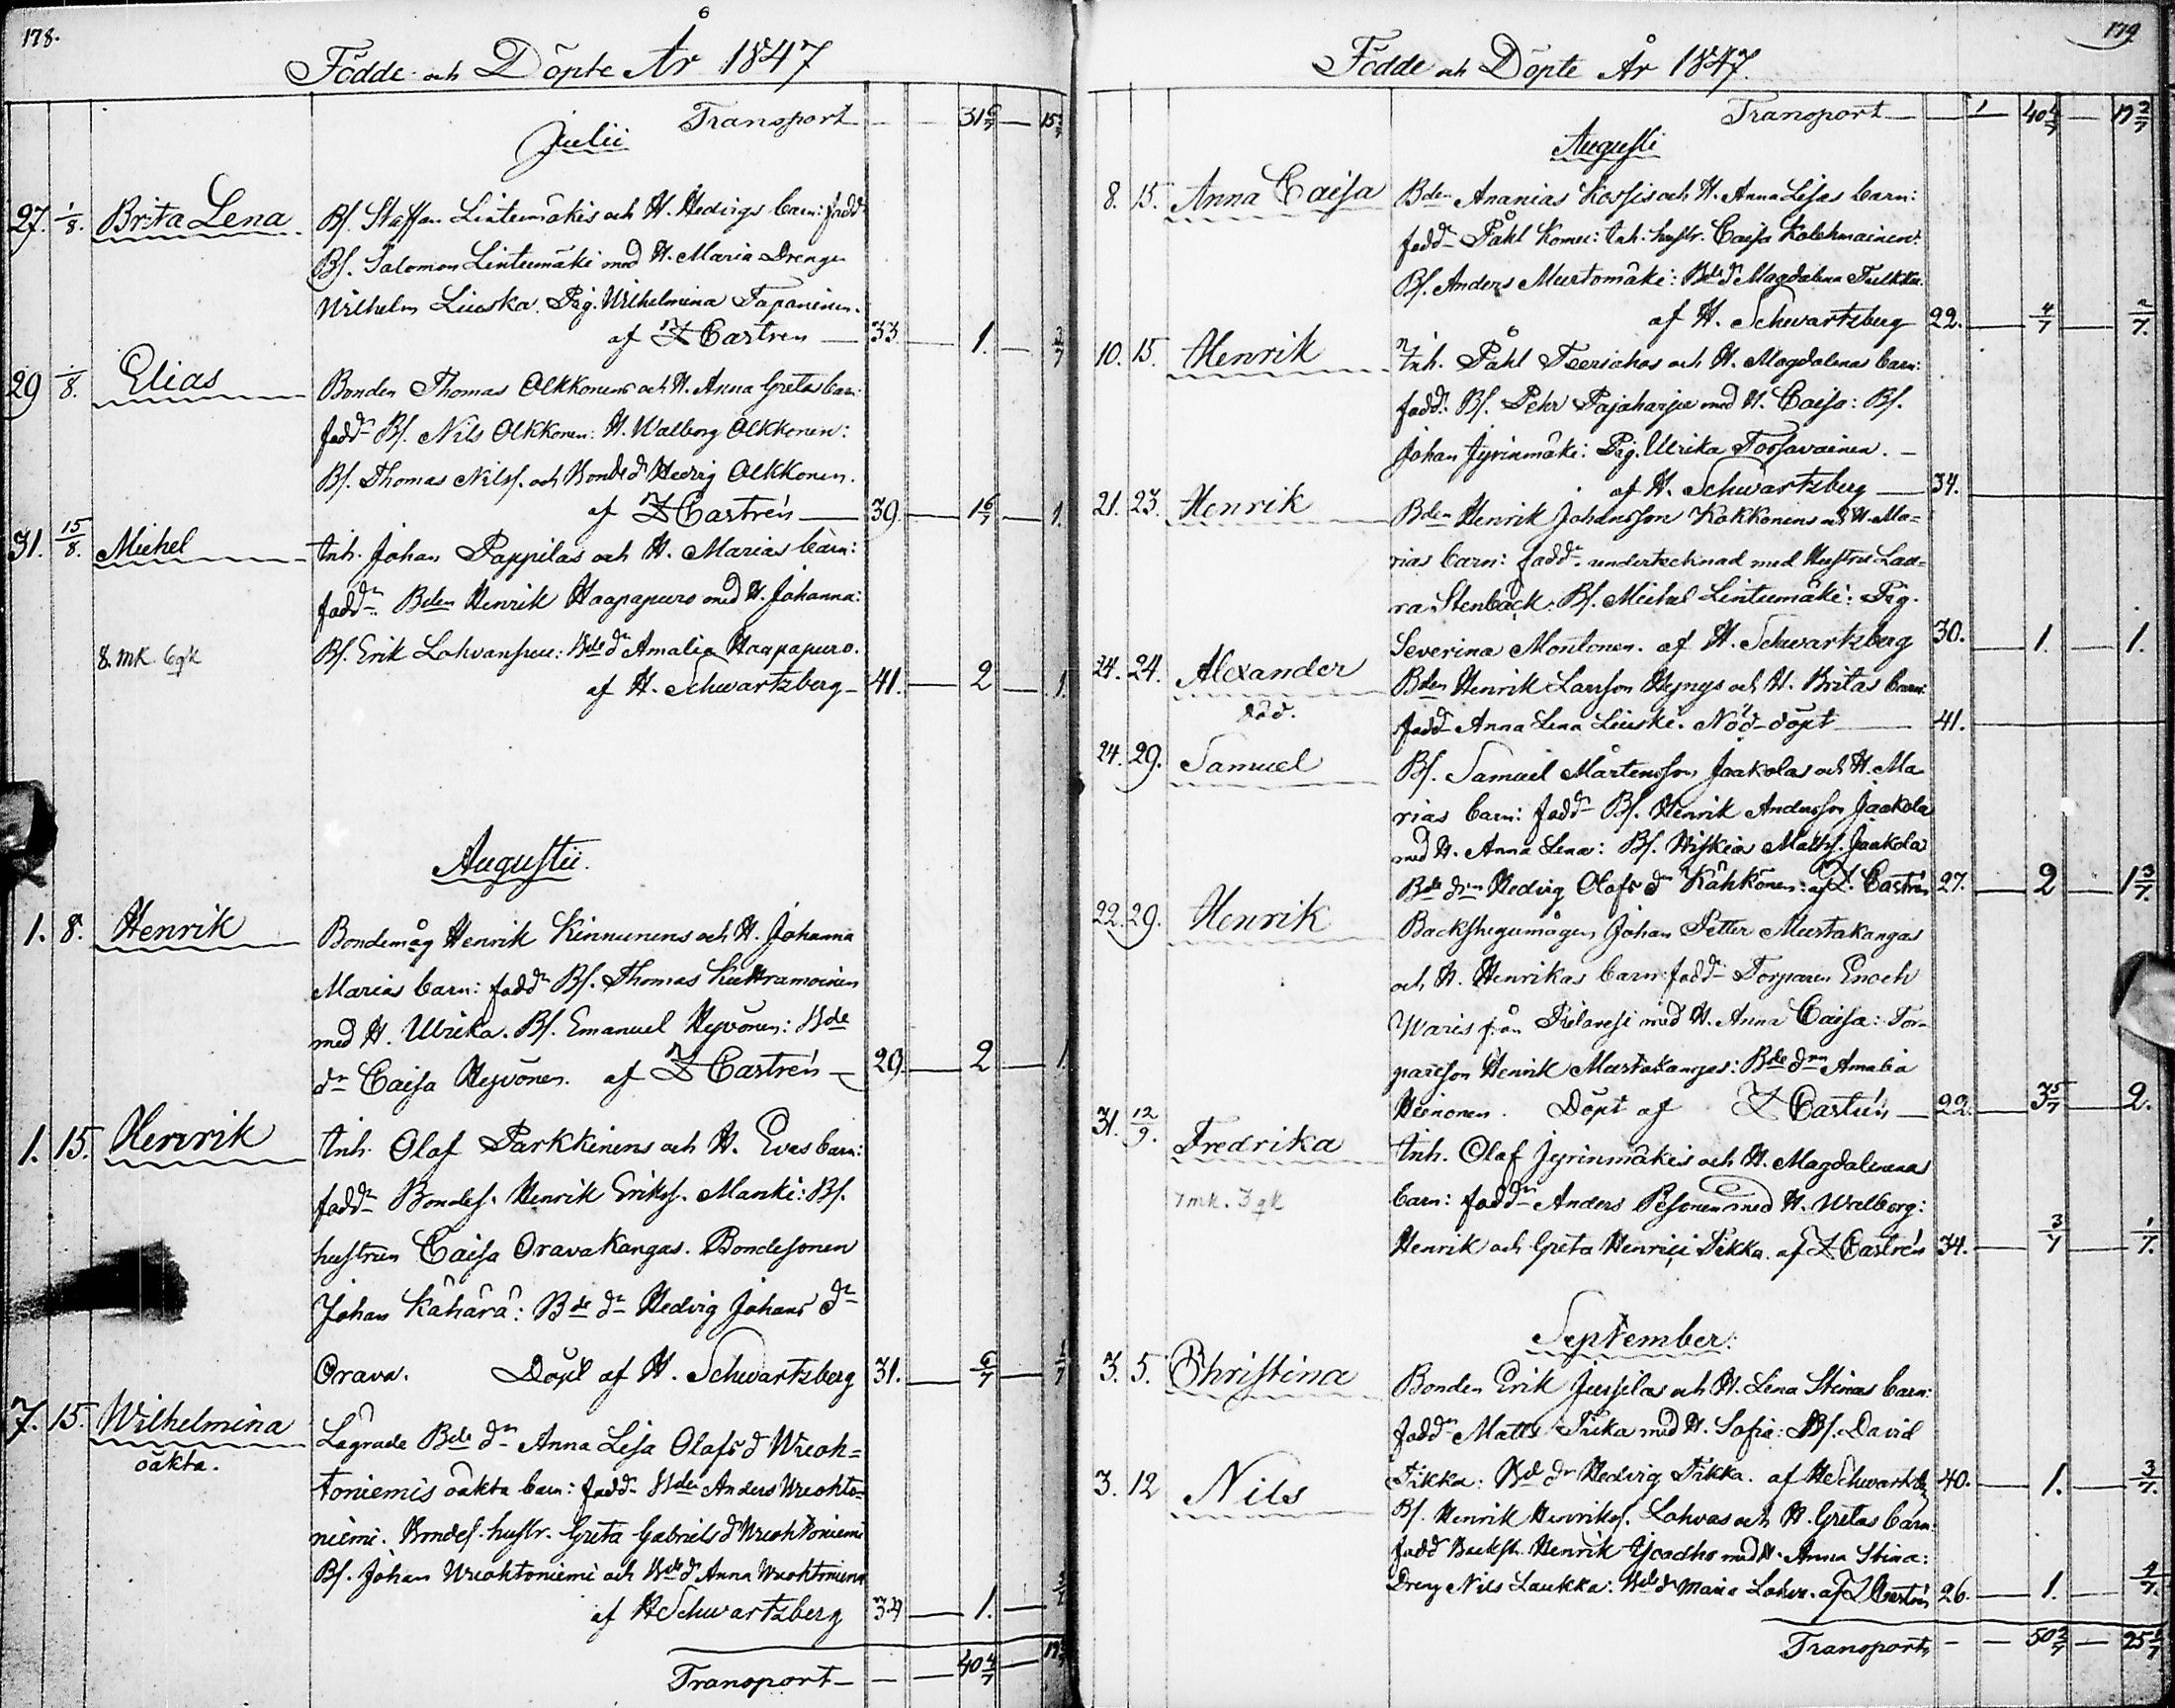 178.
Födde och Döpte År 1847
Transport — — 31 6/7 — 15
Julii
27. 1/8. Brita Lena Bs. Staffan Linteumäkis och H. Hedvigs barn: fadd
Bs. Salomon Linteumäki med H. Maria Drengen
Wilhelm Liuska. Pig. Wilhelmina Tapaninen.
af Z Castren — 33. — 1. —
29 1/8. Elias Bonden Thomas Olkkonens och H. Anna Gretas barn:
fadd Bs. Nils Olkkonen: H. Walborg Olkkonen:
Bs. Thomas Nilss. och Bonde dr Hedvig Olkkonen.
af Z Castrén — 39. — 1 6/7 — 1.
31. 15/8. Michel Inh. Johan Pappilas och H. Marias barn:
fadd. Bden Henrik Haapapuro med H. Johanna:
8. mk. 6 gk Bs. Erik : Bde dr Amalia Haapapuro.
af H. Schwartzberg — 41. — 2 — 1.
Augustii.
1. 8. Henrik Bondemåg Henrik Kinnunens och H. Johanna
Marias barn: fadd Bs. Thomas
med H. Ulrika. Bs. Emanuel Hyvönen: Bde
dr Caisa Hyvönen. af Z Castrén — 29. — 2 — 1
1. 15. Henrik Inh. Olof Parkkinens och H. Evas barn:
fadd Bondes. Henrik Eriks. Manki: Bs.
hustrun Caisa Oravakangas. Bondesonen
Johan Kähärä: Bde dr Hedvig Johans dr
Orava. Döpt af H. Schwartzberg 31. — 6/7 — 1/7
7. 15. Wilhelmina Lägrade Bde dr Anna Lisa Olofs d Wuoh=
oäkta. toniemis oäkta barn: fadd Bden Anders Wuohto=
niemi. Bondes. hustr. Greta Gabriels d Wuohtoniemi
Bs. Johan Wuohtoniemi och Bde d Anna Wuohtoniemi
af H Schwartzberg 34 — 1. —
Transport — — 40 4/7 — 19
179
Födde och Döpte År 1847.
Transport — — 1 — 40 4/7 — 19 2/7
Augusti
8. 15. Anna Caisa Bden Ananias Kossis och H. Anna Lisas barn:
fadd Påhl : Inh. hustr. Caisa Kolehmainen:
Bs. Anders Murtomäki: Bde dr Magdalena
af H. Schwartzberg 22. — 4/7 — 2/7.
10. 15. Henrik Inh. Påhl och H. Magdalenas barn:
fadd. Bs. Pehr Pajaharju med H. Caisa: Bs.
Johan Jyrinmäki: Pig. Ulrika Torsavainen. —
af H. Schwartzberg — 34.
21. 23. Henrik Bden Henrik Johansson Kokkonens och H. Ma=
rias barn: fadd. undertecknad med Hustru Lau=
ra Stenbäck. Bs. Michel Linteumäki: Pig.
Severina Montonen. af H. Schwartzberg 30. — 1. — 1.
24. 24. Alexander Bden Henrik Larsson Hynys och H. Britas barn:
död. fadd Anna Lena Liuski. Nöd-döpt — 41.
24. 29. Samuel Bs. Samuel Mårtensson Jaakolas och H. Ma
rias barn: fadd Bs. Henrik Andersson Jaakola
med H. Anna Lena: Bs. Hiskia Matts. Jaakola
Bde drn Hedvig Olofs dr Kähkönen: af Z. Castrén 27. — 2 — 1 3/7.
22. 29. Henrik Johan Petter Murtakangas
och H. Henrikas barn: fadd Torparen Enoch
Waris från Pielavesi med H. Anna Caisa: Tor-
pareson Henrik Murtakangas: Bde drn Amalia
Heinonen. Döpt af Z Castrén — 22. — 3 5/7 — 2.
31. 12/9. Fredrika Inh. Olof Jyrinmäkis och H. Magdalenas
7 mk. 3 gk barn: fadd Anders Pesonen med H. Walborg:
Henrik och Greta Henrici Tikka. af Z Castrén 34. — 3/7 — 1/7.
September:
3. 5. Christina Bonden Erik Jussilas och H. Lena Stinas barn:
fadd Matts Tikka med H. Sofia: Bs. David
Tikka: Bde dr Hedvig Tikka. af H Schwartzbg 40. — 1. — 3/7.
3. 12 Nils Bs. Henrik Henrikss. Lahvas och H. Gretas barn:
fadd Backst. Henrik med H. Anna Stina:
Dreng Nils Laukka: Bde dr Maria Lahva. af Z Castrén 26. — 1. — 4/7.
Transport — — 50 2/7 — 25